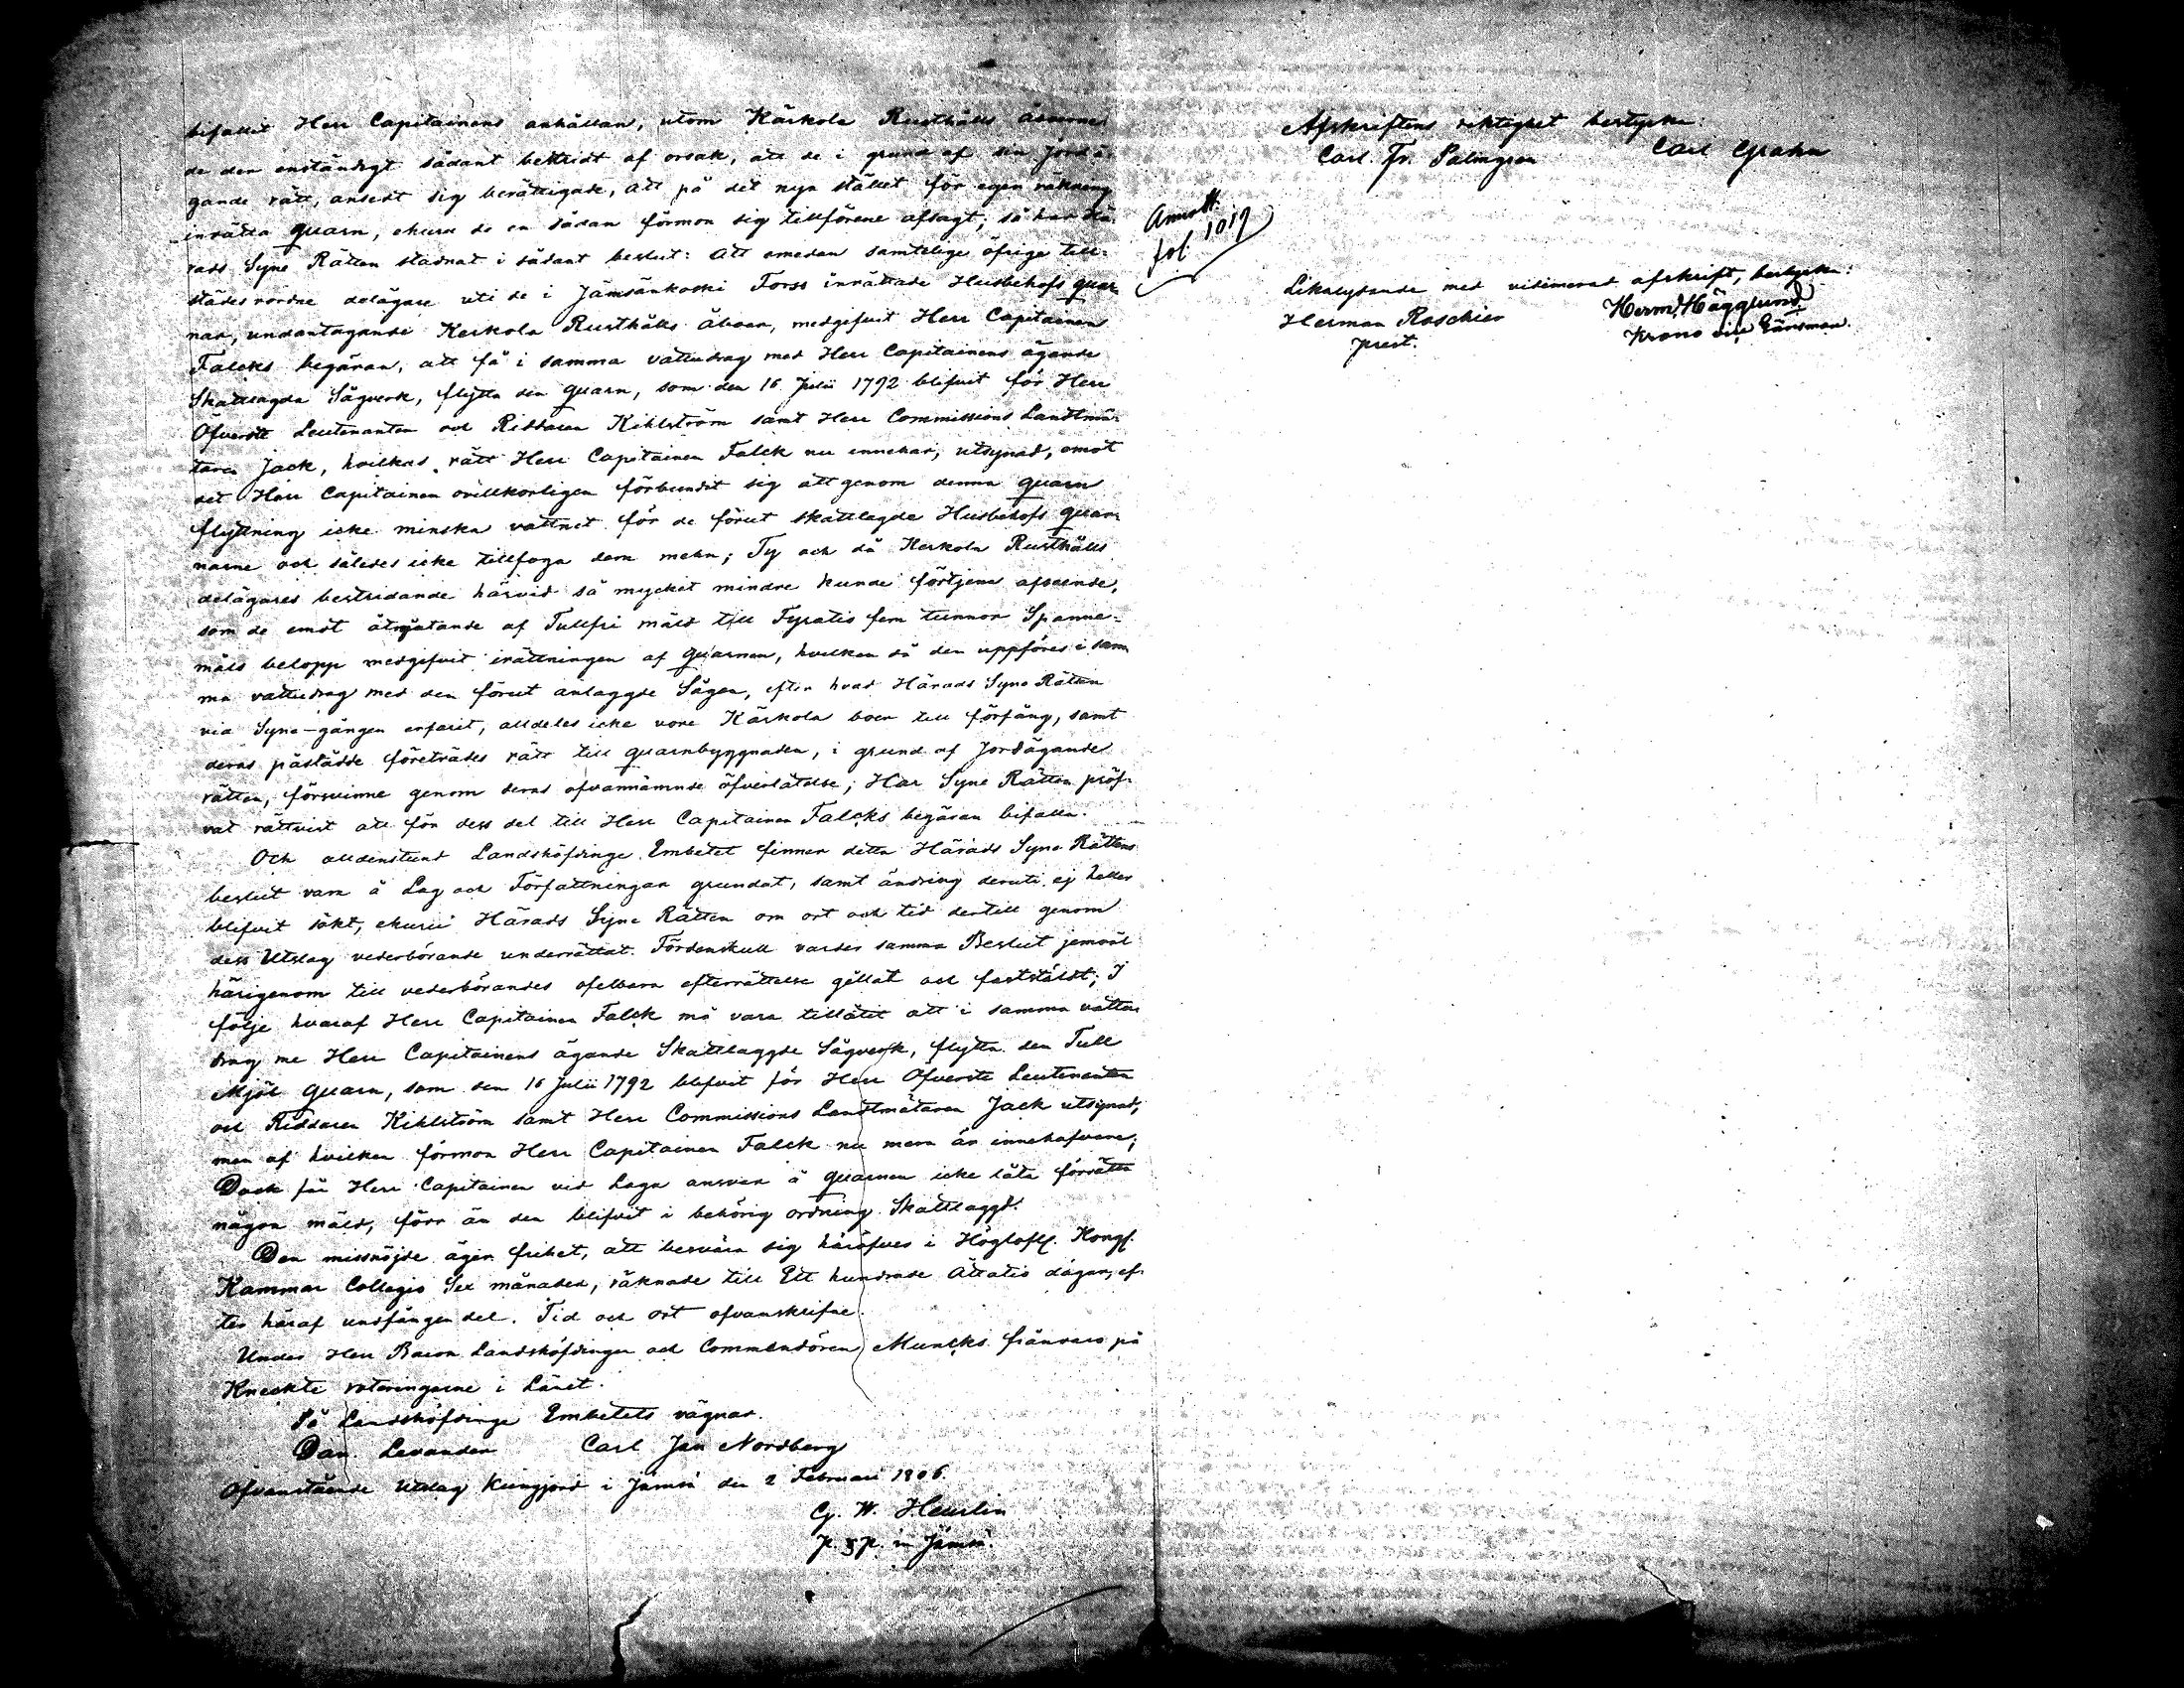 bifallit Herr Capitainens anhållan, utom Kärkola Rusthålls åboerne,
de der enständigt sådant bestridt af orsak, att de i grund af sin jordä-
gande rätt, ansedt sig berättigade, att på det nya stället för egen räkning
inrätta quarn, ehuru de en sådan förmon sig tillförene afsagt; så har Hä-
rads Syne Rätten stadnat i sådant beslut: Att emedan samtelige öfrige till-
städesvordne delägare uti de i Jämsänkoski Forss inrättade Husbehofs quar-
nar, undantagande Kerkola Rusthålls Åboer, medgifvit Herr Capitainen
Falcks begäran, att få i samma vattudrag med Herr Capitainens ägande
Skattlagda Sågverk, flytta den quarn, som den 16 Julii 1792 blifvit för Herr
Öfverste Leutenanten och Riddaren Kihlström samt Herr Commissions Landtmä-
taren Jack, hvilkas rätt Herr Capitainen Falck nu innehar, utsynad, emot
det Herr Capitainen ovillkorligen förbundit sig att genom denna quarn
flyttning icke minska vattnet för de förut skattlagde Husbehofs quar-
narne och således icke tillfoga dem mehn; Ty och då Kerkola Rusthålls
delägares bestridande härvid så mycket mindre kunde förtjena afseende,
som de emot åtnjutande af Tullfri mäld till Fyratio fem tunnor Spanne-
måls belopp medgifvit inrättningen af quarnen, hvilken då den uppföres i sam
ma vattudrag med den förut anlaggde Sågen, efter hvad Härads Syne Rätten
vid Syne-gången erfarit, alldeles icke vore Kärkola boer till förfång, samt
deras påstådde företrädes rätt till quarnbyggnaden, i grund af Jordägande
rätten, försvinne genom deras ofvannämnde öfverlåtelse; Har Syne Rätten pröf-
vat rättvist att för dess del till Herr Capitainen Falcks begäran bifalla.
Och alldenstund Landshöfdinge Embetet finner detta Härads Syne Rättens
beslut vara å Lag och Författningar grundat, samt ändring deruti ej heller
blifvit sökt, ehuru Härads Syne Rätten om ort och tid dertill genom
dess Utslag vederbörande underrättat. Fördenskull varder samma Beslut jemväl
härigenom till vederbörandes ofelbara efterrättelse gillat och fastställdt; I
följe hvaraf Herr Capitainen Falck må vara tillåtit att i samma vattu-
drag me Herr Capitainens ägande Skattlaggde Sågverk, flytta den Tull
Mjöl quarn, som den 16 Julii 1792 blifvit för Herr Öfverste Leutenanten
och Riddaren Kihlström samt Herr Commissions Landtmätaren Jack utsynad,
men af hvilken förmon Herr Capitainen Falck nu mera är innehafvare;
Dock får Herr Capitainen vid Laga ansvar å quarnen icke låta förrätta
någon mäld, förr än den blifvit i behörig ordning Skattlaggd.
Den missnöjde äger frihet, att besvära sig häröfver i Höglofl. Kongl.
Kammar Collegio Sex månader, räknade till Ett hundrade Åttatio dagar, ef-
ter häraf undfången del. Tid och ort ofvanskrifne.
Under Herr Baron Landshöfdingen och Commendören Muncks frånvaro på
Kneckte roteringarne i Länet.
På Landshöfdinge Embetets vägnar.
Dan. Levander Carl Jan Nordberg
Ofvanstående Utslag kungjord i Jämsä den 2 Februari 1806.
G. W. Heurlin
P. & P. in Jämsä.
Annott.
fol 1019
Afskriftens riktighet bestyrka:
Carl. Fr. Palmgren Carl Grahn
Likalydande med vidimerad afskrift, bestyrka:
Herman Roschier Herm. Hägglund
prest. Krono vice Länsman.